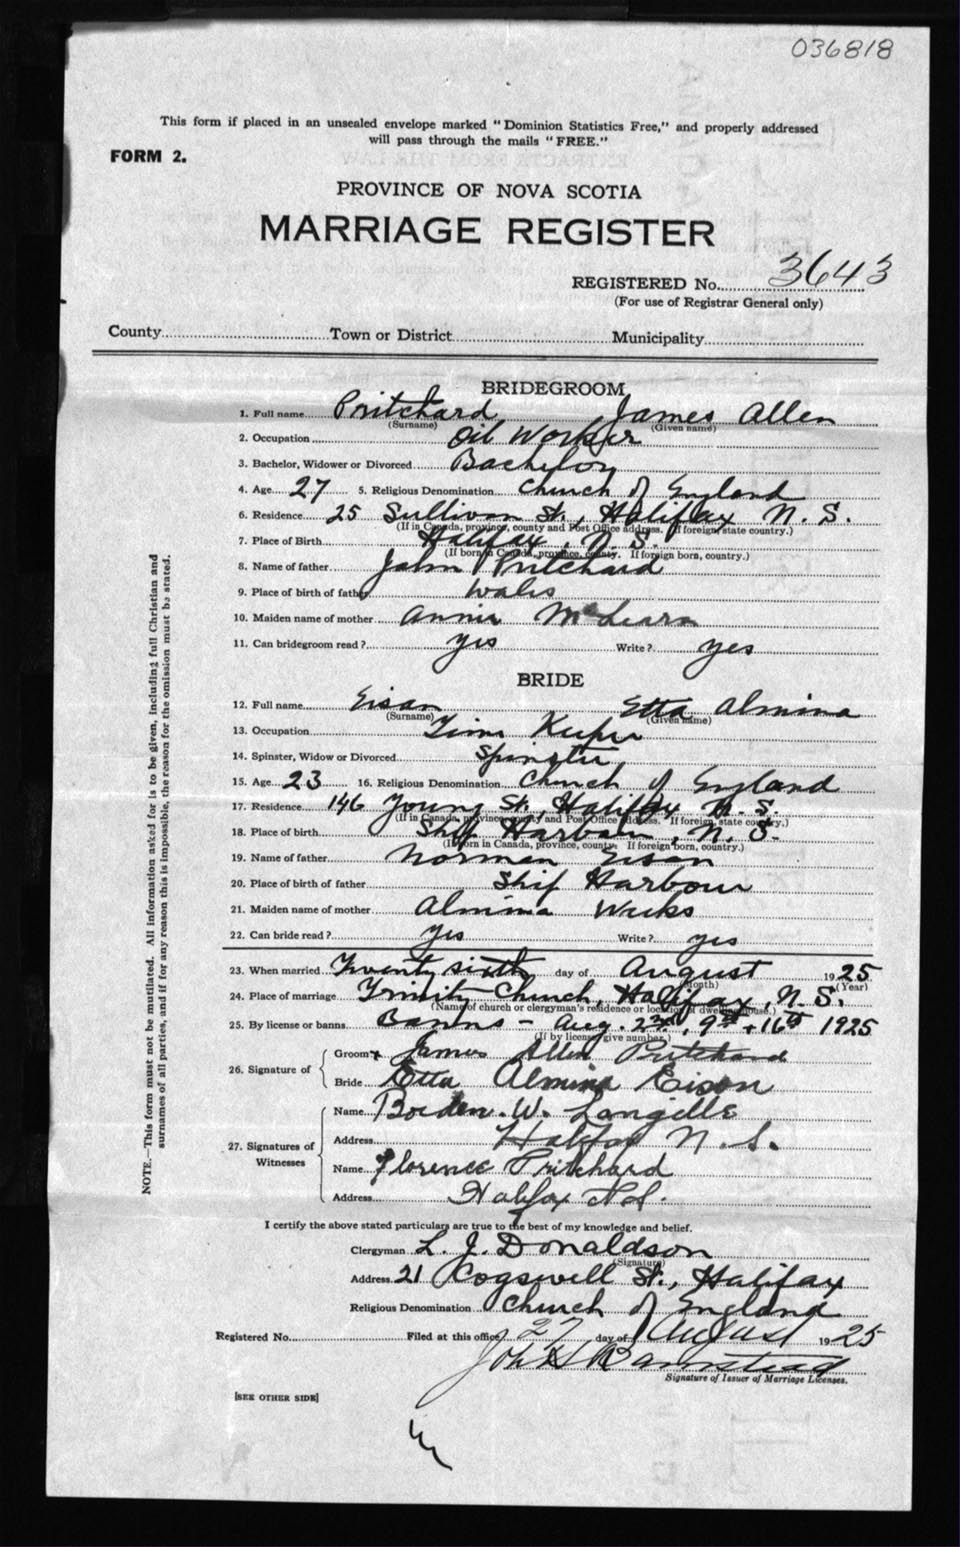 036818
This form if placed in an unsealed envelope marked "Dominion Statistics Free," and properly addressed
will pass through the mails "FREE."
FORM 2.
PROVINCE OF NOVA SCOTIA
MARRIAGE REGISTER
REGISTERED No. 3643
(For use of Registrar General only)
County Town or District Municipality
BRIDEGROOM
1. Full name Pritchard James Allen
(Surname) (Given name)
2. Occupation Oil Worker
3. Bachelor, Widower or Divorced Bachelor
4. Age 27 5. Religious Denomination Church of England
6. Residence 25 Sullivan St., Halifax N. S.
(If in Canada, province, county and Post Office address. If foreign, state country.)
7. Place of Birth Halifax, N. S.
(If born in Canada, province, county. If foreign born, country.)
8. Name of father John Pritchard
9. Place of birth of father Wales
10. Maiden name of mother Annie McLearn
11. Can bridegroom read? yes Write? yes
BRIDE
12. Full name Eisan Etta Almina
(Surname) (Given name)
13. Occupation Time Keeper
14. Spinster, Widow or Divorced Spinster
15. Age 23 16. Religious Denomination Church of England
17. Residence 146 Young St., Halifax N. S.
(If in Canada, province, county and Post Office address. If foreign, state country.)
18. Place of birth Ship Harbour, N. S.
(If born in Canada, province, county. If foreign born, country.)
19. Name of father Norman Eisan
20. Place of birth of father Ship Harbour
21. Maiden name of mother Almina Weeks
22. Can bride read? yes Write? yes
23. When married Twenty sixth day of August 1925
(Month) (Year)
24. Place of marriage Trinity Church, Halifax, N. S.
(Name of church or clergyman's residence or location of dwelling house.)
25. By license or banns Banns - Aug. 2nd, 9th + 16th 1925
(If by license give number.)
26. Signature of
Groom x James Allen Pritchard
Bride Etta Almina Eison
27. Signatures of Witnesses
Name Borden. W. Langille
Address Halifax N. S.
Name Florence Pritchard
Address Halifax N.S.
I certify the above stated particulars are true to the best of my knowledge and belief.
Clergyman L. J. Donaldson
(Signature)
Address 21 Cogswell St., Halifax
Religious Denomination Church of England
Registered No. Filed at this office 27 day of August 1925
Signature of Issuer of Marriage Licenses.
[SEE OTHER SIDE]
NOTE.—This form must not be mutilated. All information asked for is to be given, including full Christian and
surnames of all parties, and if for any reason this is impossible, the reason for the omission must be stated.